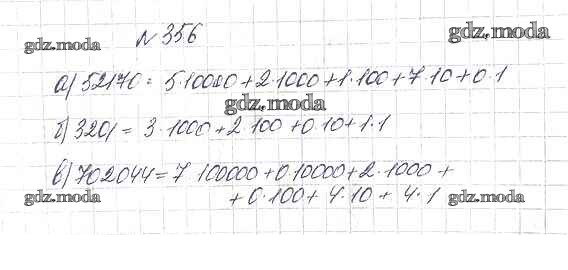 № 356
gdz.moda
gdz.moda
а) 52170 = 5·10000 + 2·1000 + 1·100 + 7·10 + 0·1
gdz.moda
б) 3201 = 3·1000 + 2·100 + 0·10 + 1·1
в) 702044 = 7·100000 + 0·10000 + 2·1000 +
+ 0·100 + 4·10 + 4·1
gdz.moda
gdz.moda